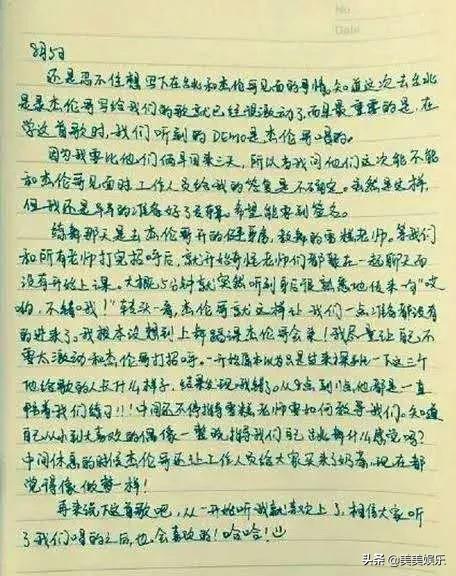 No.
Date
8月5日
还是忍不住想写下在台北和杰伦哥见面的事情。知道这次去台北
是录杰伦哥写给我们的歌就已经很激动了,而且最重要的是,在
学这首歌时,我们听到的DEMO是杰伦哥唱的。
因为我要比他们俩早回来三天,所以当我问他们这次能不能
和杰伦哥见面时工作人员给我的答复是不确定。虽然是这样,
但我还是早早的准备好了专辑,希望能要到签名。
练舞那天是去杰伦哥开的健身房,教舞的雪糕老师。等我们
和所有老师打完招呼后,就开始奇怪老师们都聚在一起聊天而
没有开始上课。大概5分钟就突然听到耳后很熟悉地传来一句“哎
哟,不错哦!”转头一看,杰伦哥就这样让我们一点准备都没有
的进来了。我根本没想到上舞蹈课杰伦哥会来!我尽量让自己不
要太激动和杰伦哥打招呼。一开始原本以为只是过来探班一下这三个
他给歌的人长什么样子,结果发现我错了。从9点到1点他都是一直
带着我们练习!!!中间还不停指导雪糕老师要如何教导我们。知道
自己从小到大喜欢的偶像一整晚指导我们自己跳舞什么感觉吗?
中间休息的时候杰伦哥还让工作人员给大家买来了奶茶,现在都
觉得像做梦一样!
再来说下这首歌吧,从一开始听我就喜欢上了,相信大家听
了我们唱的之后,也会喜欢的!哈哈!
头条@美美娱乐